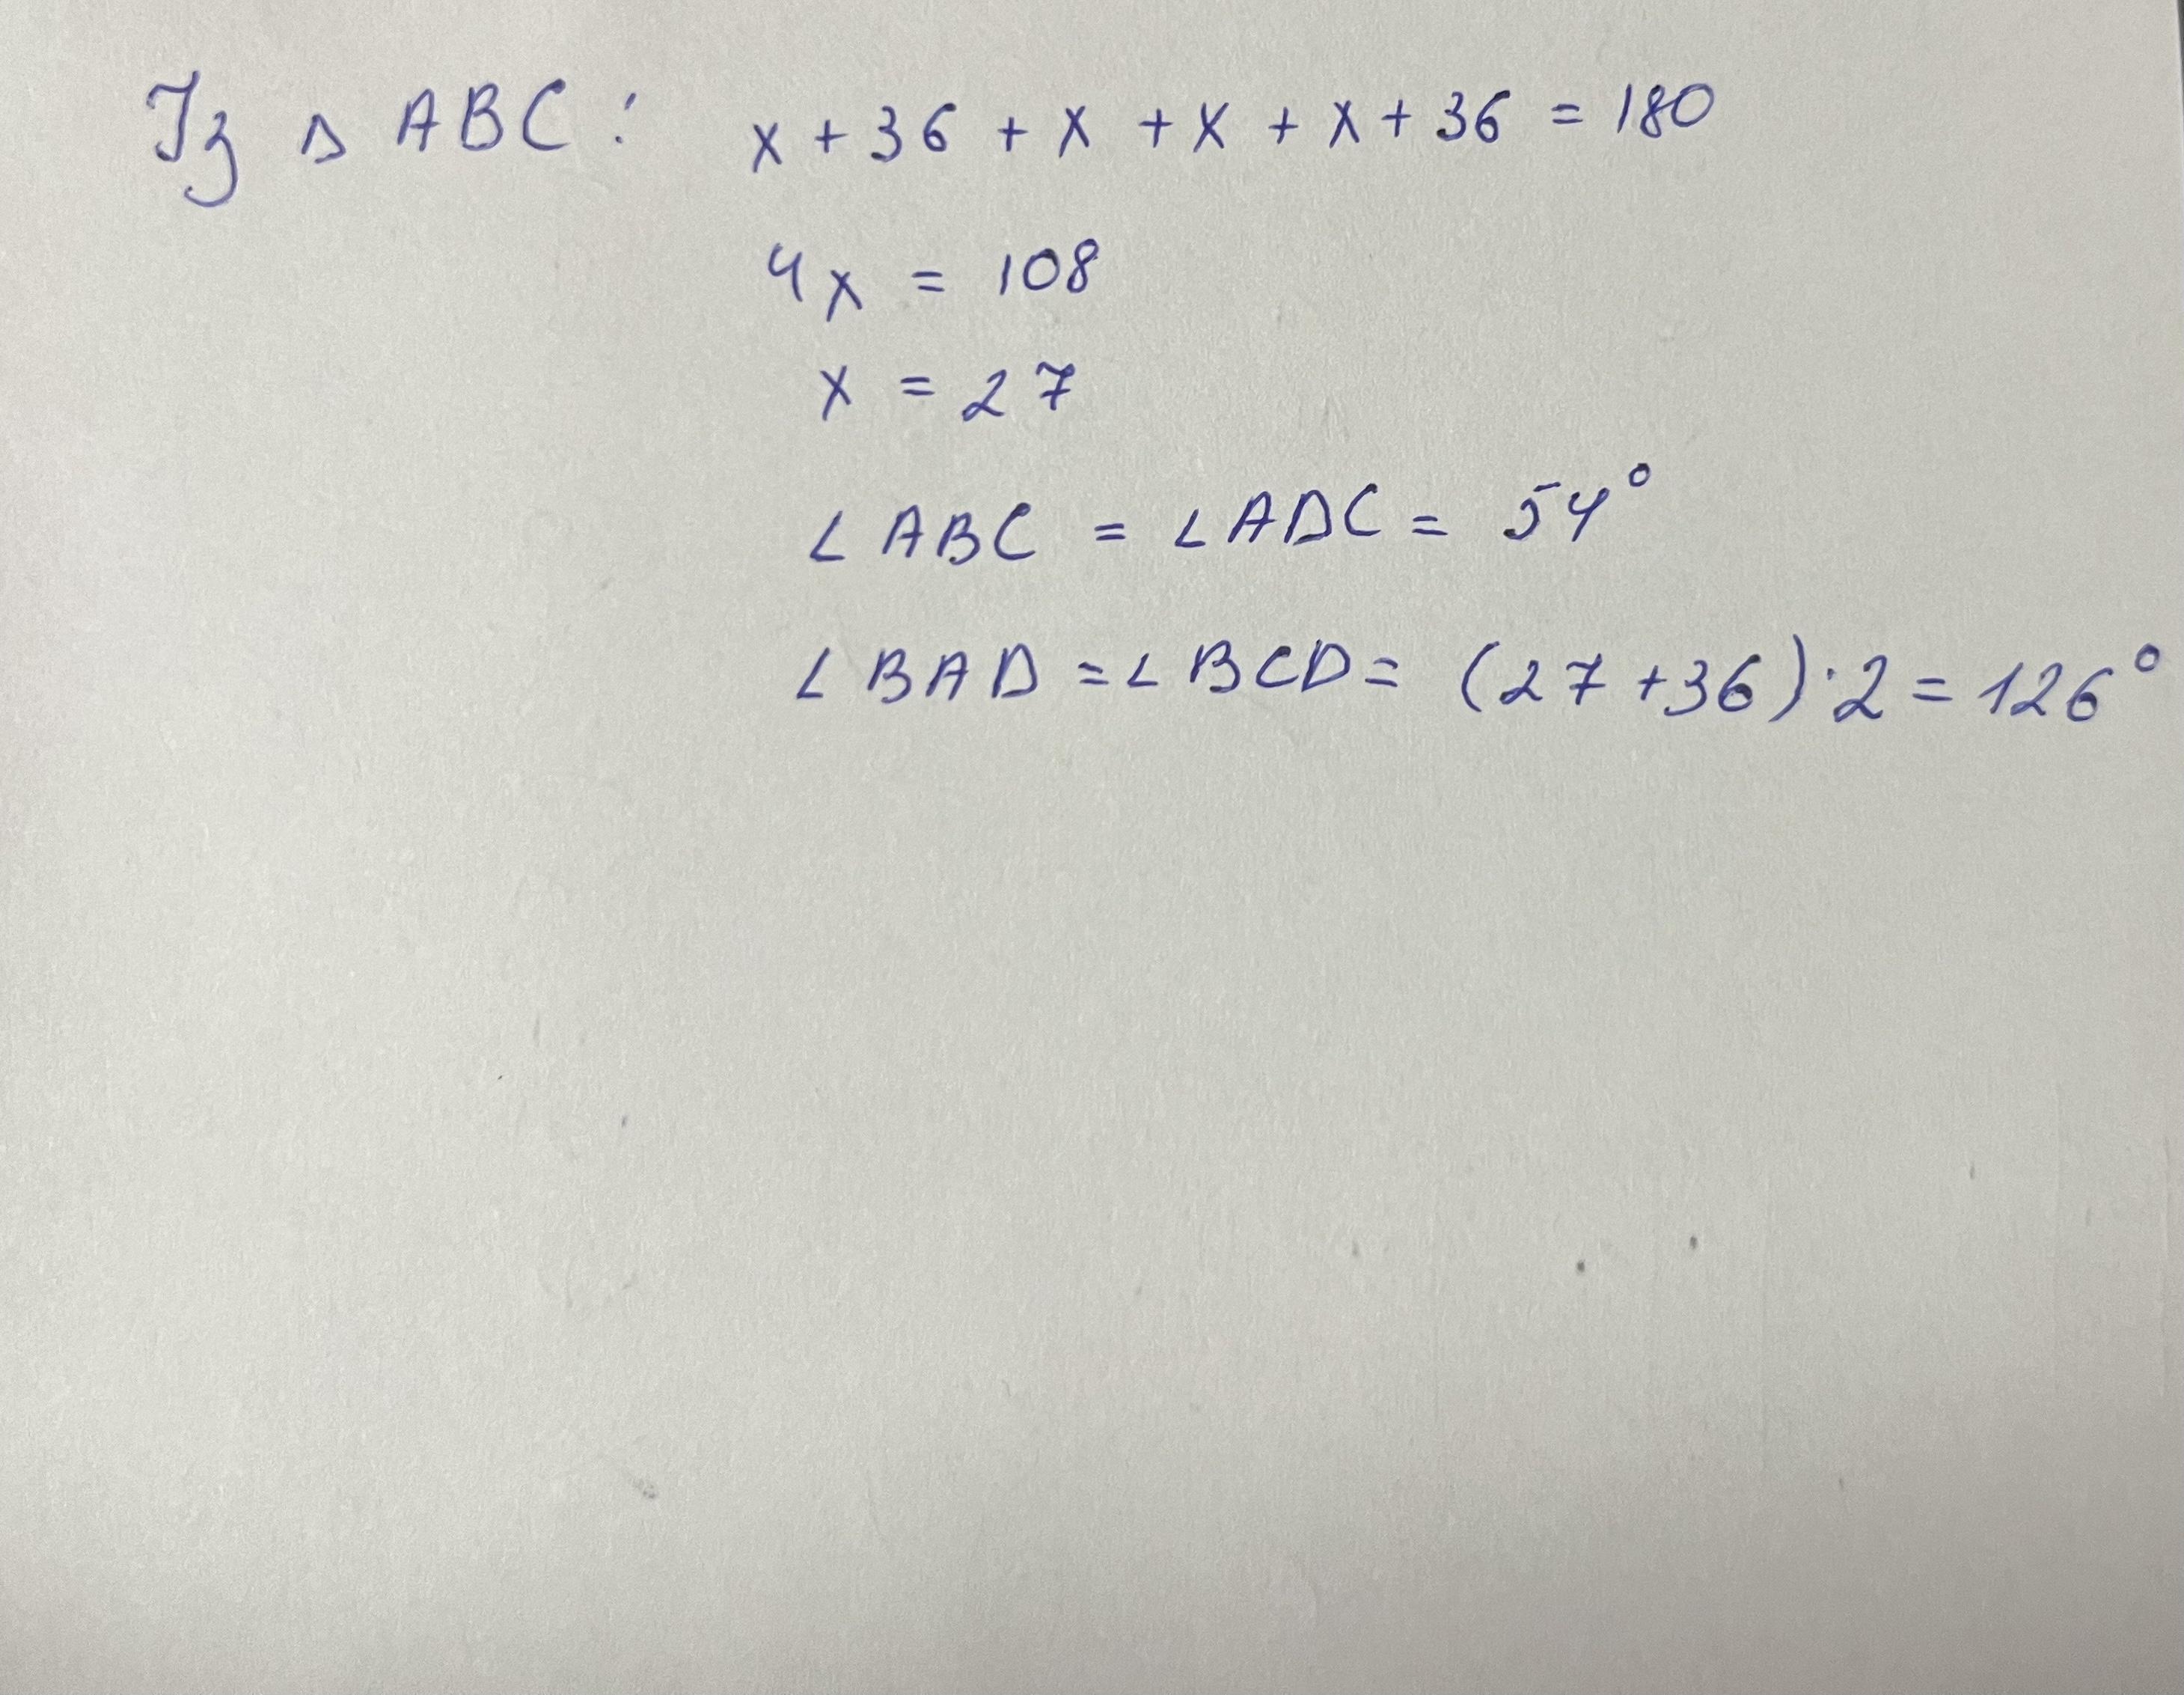 Із △ ABC: x + 36 + x + x + x + 36 = 180
4x = 108
x = 27
∠ ABC = ∠ ADC = 54°
∠ BAD = ∠ BCD = (27 + 36) · 2 = 126°